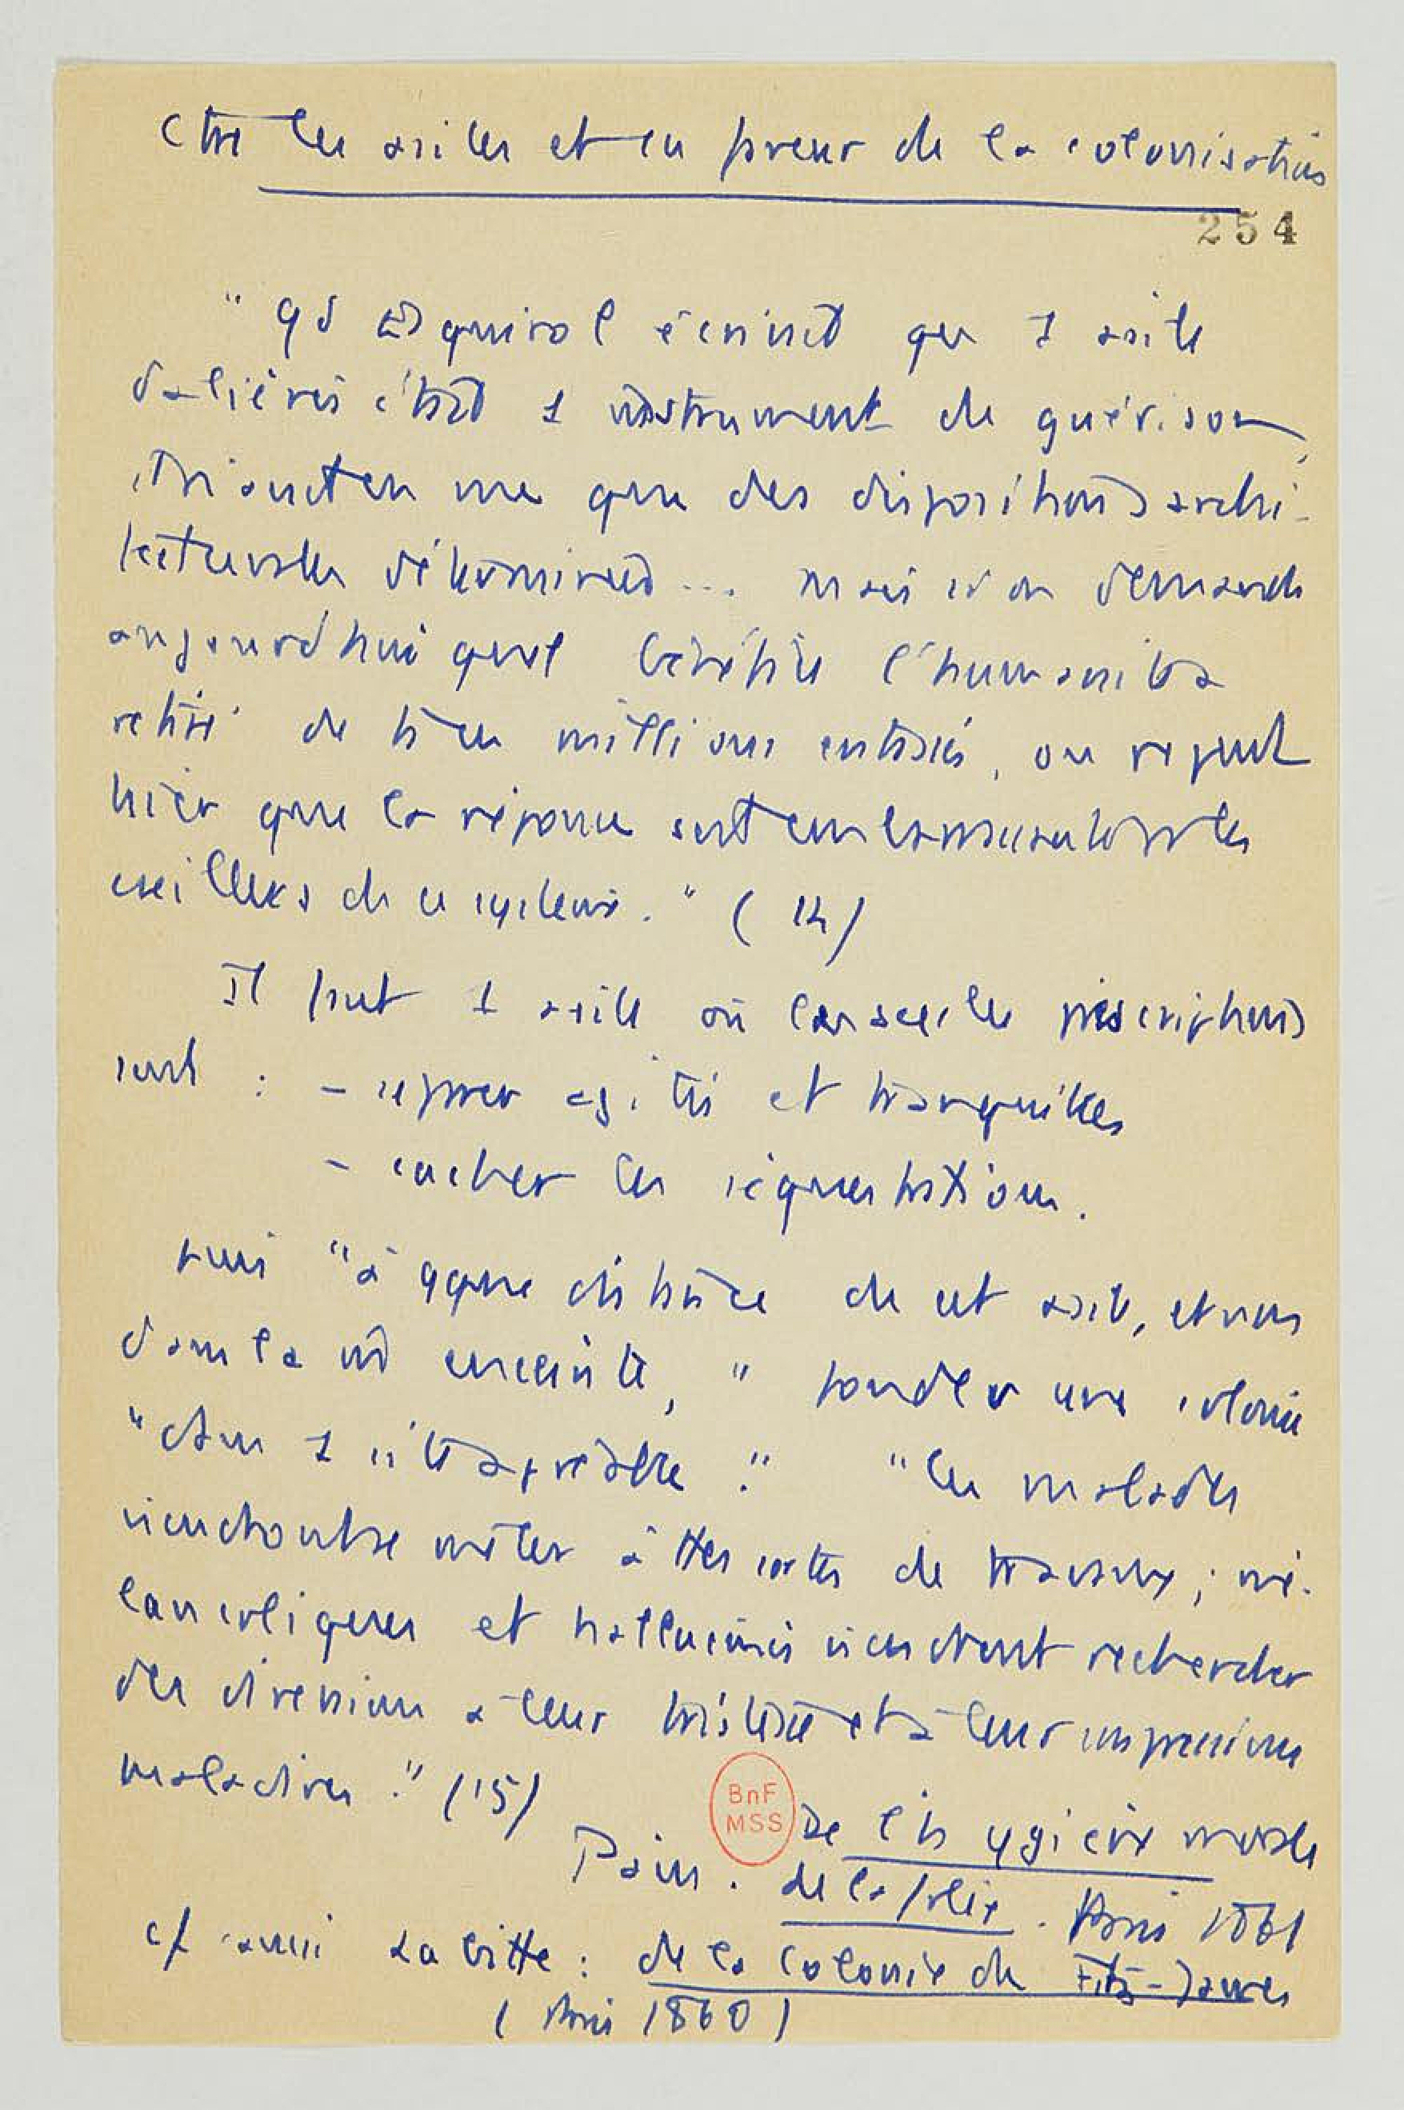 Ctre les asiles et en faveur de la colonisation
254
" Qd Esquirol écrivait que 1 asile
d'aliénés était 1 instrument de guérison,
il n'avait en vue que des dispositions archi-
tecturales déterminées ... mais si on demande
aujourd'hui quel bénéfice l'humanité a
retiré de tous millions entassés, on
que la réponse
de ce système. " (14)
Il faut 1 asile où les seules prescriptions
sont : - séparer agités et tranquilles
- cacher les séquestrations.
Puis "à qque distance de cet asile, et non
dans la m̂ enceinte, " fonder une colonie
"dans 1 site agréable." "Les malades
viendront se mêler à ttes sortes de travaux ; mé-
lancoliques et hallucinés viendront rechercher
des diversions à leur tristesse et à leurs impressions
maladives." (15)
BnF
MSS
Pain. De l'hygiène morale
de la folie. Paris 1861
cf aussi Labitte : de la colonie de Fitz-James
(Paris 1860)